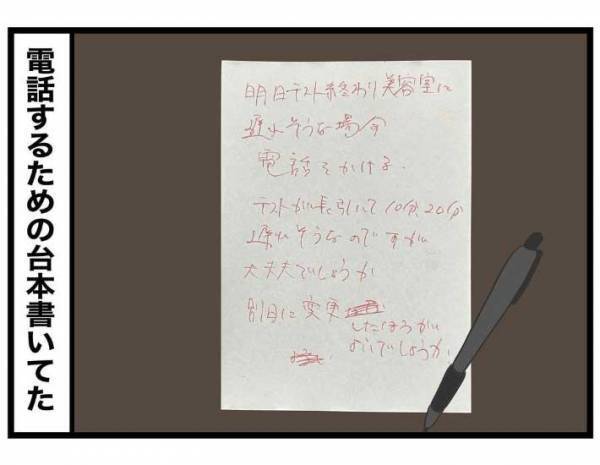 電話するための台本書いてた
明日テスト終わり美容室に
遅れそうな場合
電話をかける.
テストが長引いて10分,20分
遅れそうなのですが
大丈夫でしょうか
別日に変更
したほうが
よいでしょうか.